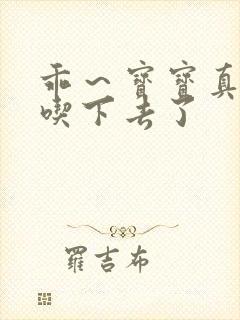 乖～寶寶真
喫下去了
羅吉布